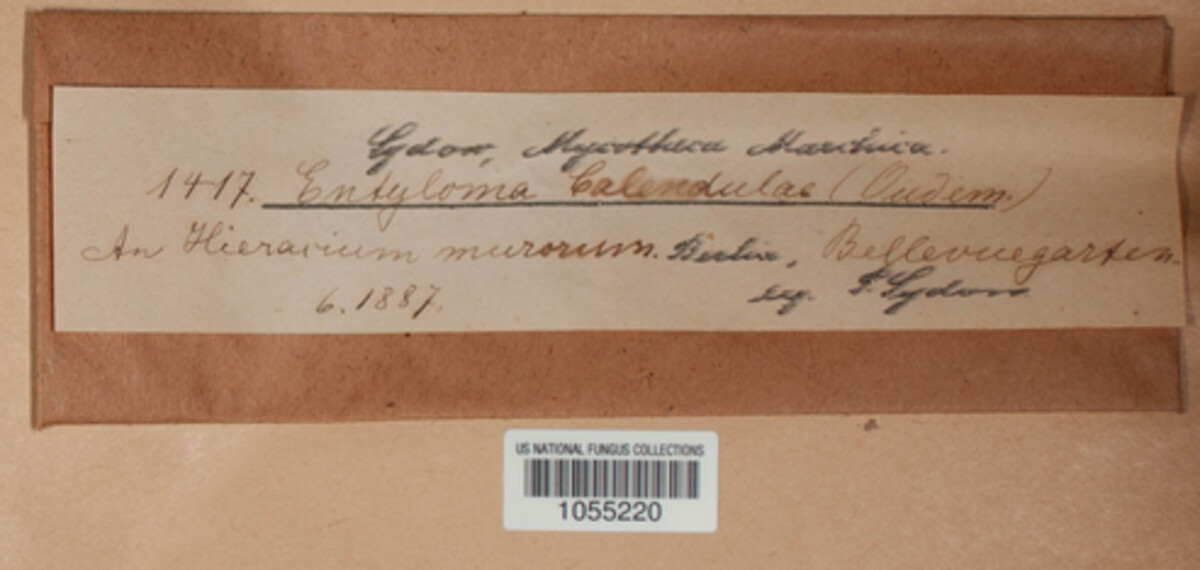 Sydow, Mycotheca Marchica.
1417. Entyloma Calendulae (Oudem.)
An Hieracium murorum. Berlin, Bellevuegarten.
6. 1887. leg. P. Sydow
US NATIONAL FUNGUS COLLECTIONS
1055220